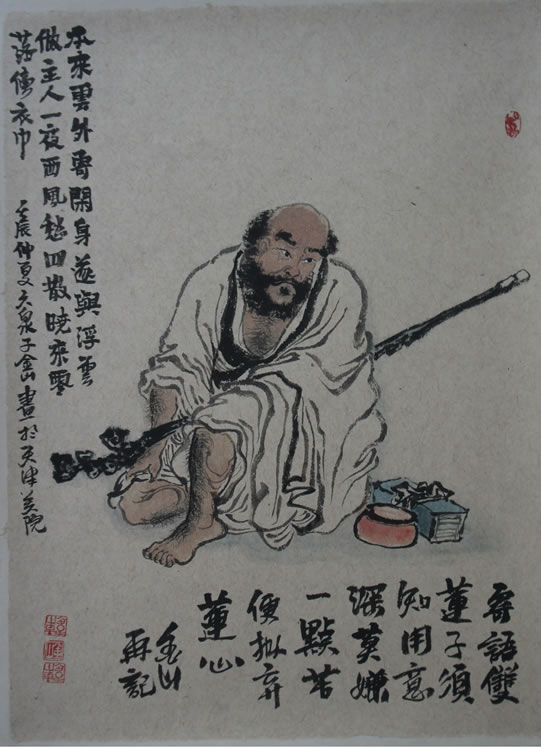 本來雲外寄閑身遂與浮雲
做主人一夜西風愁四散曉來零
落傍衣巾
壬辰仲夏泉子金山畫於天津美院
寄語雙
蓮子須
知用意
深莫嫌
一點苦
便擬弃
蓮心
金山
再記